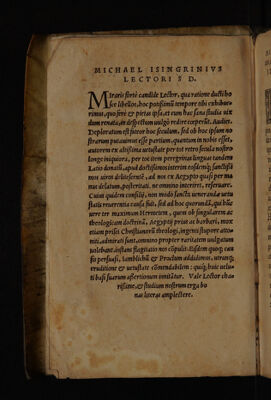 MICHAEL ISINGRINIVS
LECTORI S D.
Miraris fortè candide Lector, qua ratione ducti ho
sce libellos, hoc potissimū tempore tibi exhibue-
rimus, quo ferè & pietas ipsa, et cum hac sana studia uix
dum renata, in despectum uulgò redire cœperūt. Audies.
Deploratum est fateor hoc seculum, sed ob hoc ipsum no
strarum putauimus esse partium, quantum in nobis esset,
autorem ex altissima uetustate per tot retro secula nostro
longe iniquiora, per tot item peregrinas linguas tandem
Latio donatū, apud doctissimos interim eosdemq́; sanctissi
mos uiros delitescentē, ad nos ex Aegypto quasi per ma
nus delatum, posteritati, ne omnino interiret, reseruare.
Cuius quidem consilij, non modo sanctæ uenerandæ uetu
statis reuerentia causa fuit, sed ad hoc quorundā, qui hūc
uere ter maximum Hermetem, quem ob singularem ac
theologicam doctrinā, Aegyptij prius ac barbari, mox
etiam prisci Christianorū theologi, ingenti stupore atto-
niti, admirati sunt, omnino propter raritatem uulgatum
uolebant, instans flagitatio nos cōpulit. Eisdem quoq; cau
sis persuasi, Iamblichū & Proclum addidimus, utrunq;
eruditione & uetustate cōmendabilem: quiq́; huic uelu
ti basi suarum assertionum innitātur. Vale Lector cha
rissime, & studium nostrum erga bo
nas literas amplectere.